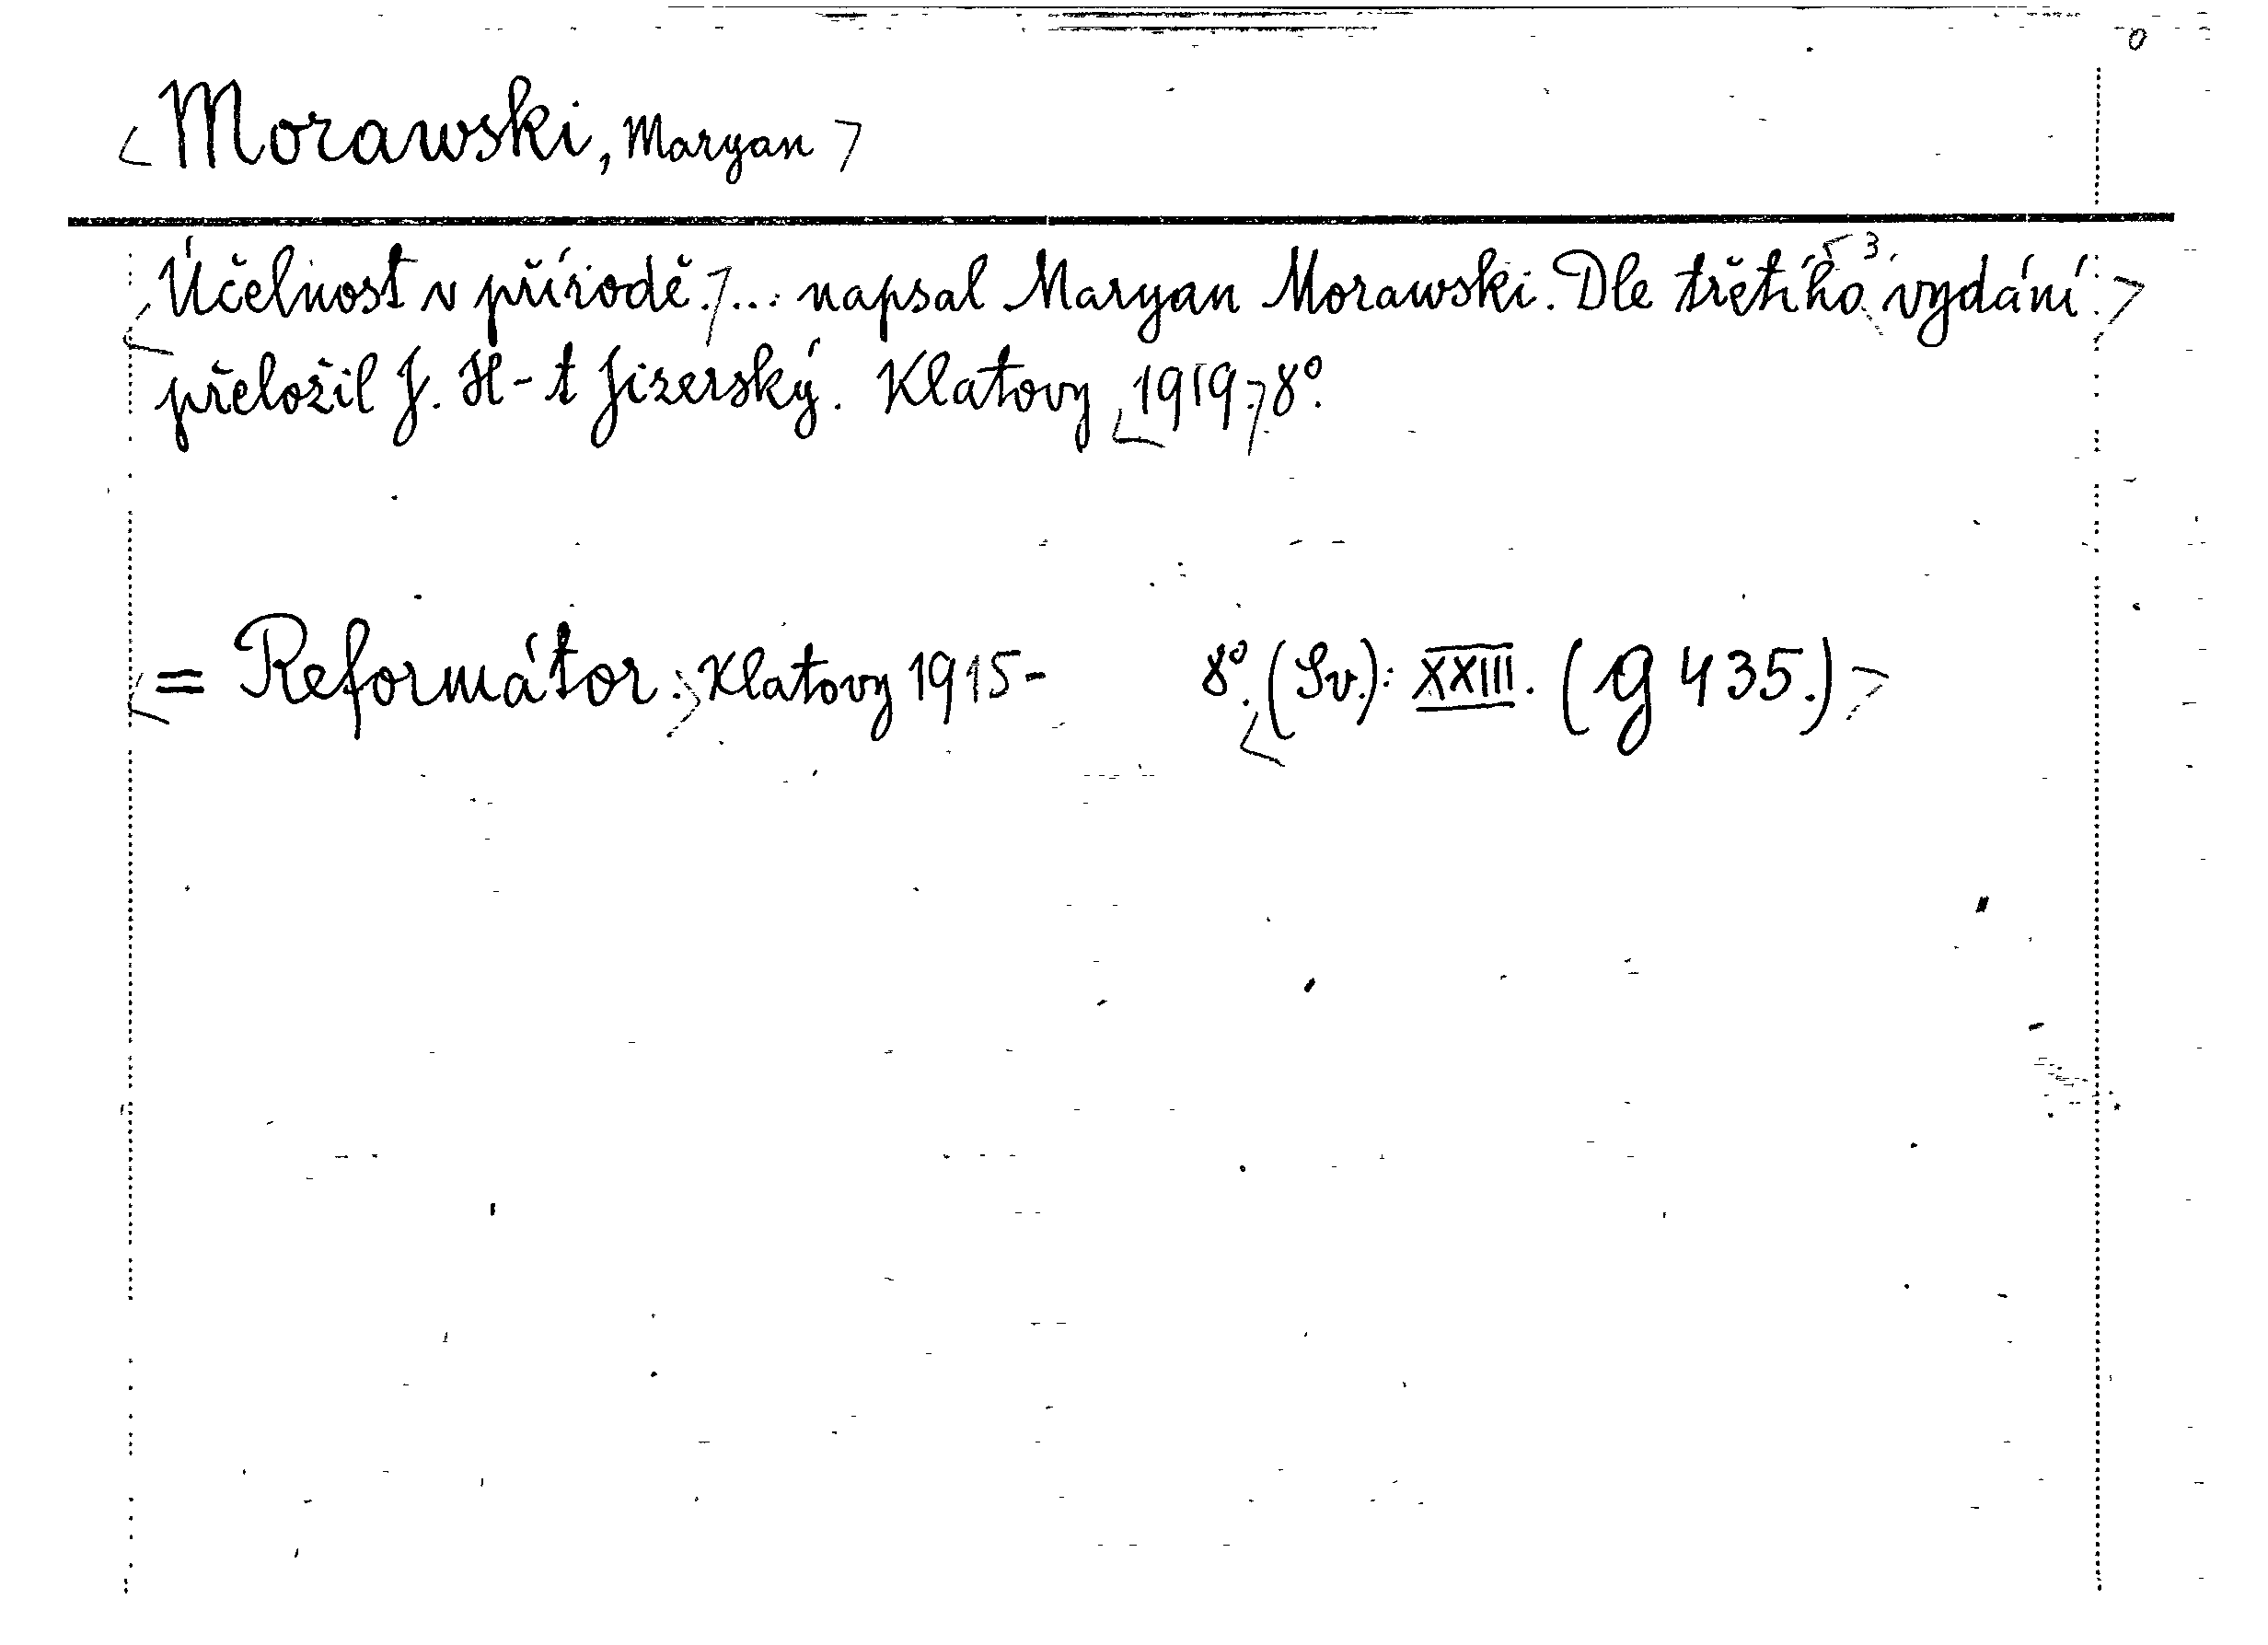 Morawski, Maryan
Účelnost v přírodě. ... napsal Maryan Morawski. Dle třetího 3. vydání
přeložil J. H-t Jizerský. Klatovy 1919. 8°.
= Reformátor. Klatovy 1915- 8°. (Sv.): XXIII. (g 435.)